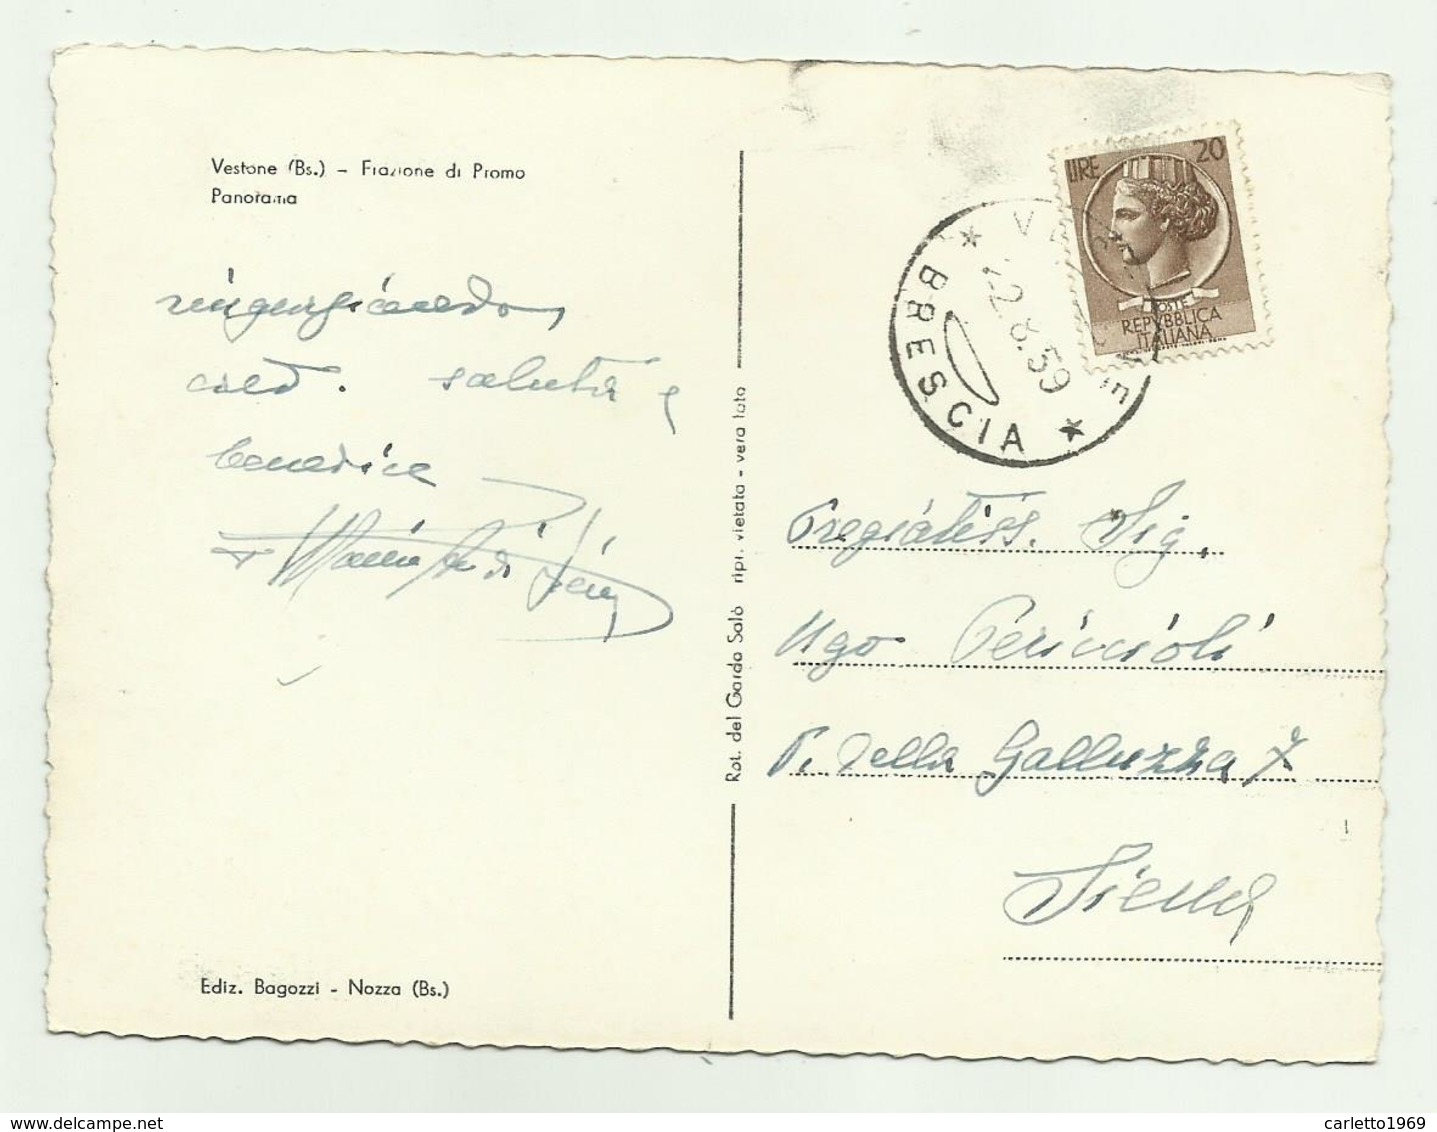 Vestone (Bs.) - Frazione di Promo
Panorama
ringraziando,
saluta e
benedice
Ediz. Bagozzi - Nozza (Bs.)
Rot. del Garda Salò ripr. vietata - vera foto
LIRE 20
POSTE
REPVBBLICA
ITALIANA
BRESCIA
22.8.59
Pregiatiss. Sig.
Ugo Periccioli
P. della Galluzza 7
Siena
carletto1969